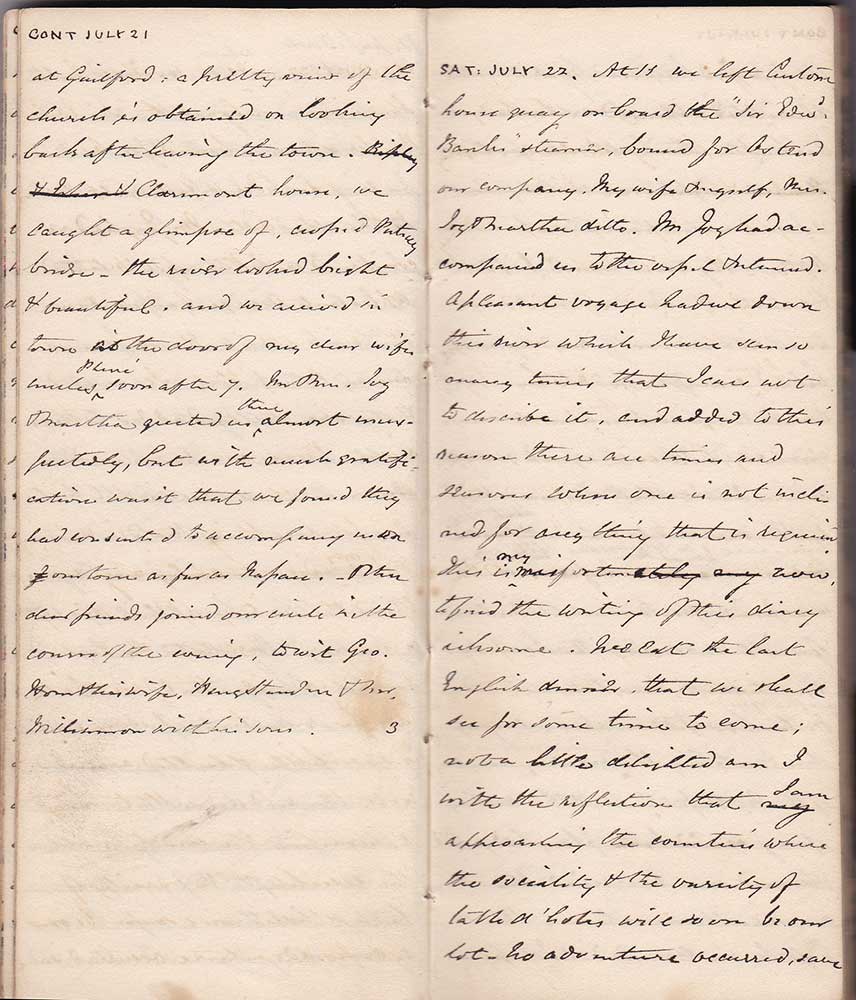 CONT JULY 21
at Guilford; a pretty view of the
church is obtained on looking
back after leaving the town. Ripley
& Esher & Claremont house, we
caught a glimpse of, crossed Putney
bridge - the river looked bright
& beautiful. and we arrived in
town at the door of my dear wife's
uncle soon after 7. Mr Mrs. Joy
& Martha greeted us there almost unex-
pectedly, but with much gratifi-
cation was it that we found they
had consented to accompany us on
our tour as far as Nassau. - Other
dear friends joined our circle in the
course of the evening, to wit Geo.
Horn & his wife, &
Williamson with his sons. 3
SAT: JULY 22. At 11 we left Custom
house quay on board the "Sir Edwd.
Banks" steamer, bound for Ostend
our company. My wife & myself, Mrs.
Joy & Martha ditto. Mr Joy had ac-
companied us to the vessel & returned.
A pleasant voyage had we down
this river which I have seen so
many times that I care not
to describe it, and added to this
reason there are times and
seasons when one is not incli
ned for any thing that is requisite
this is my misfortunately my now,
to find the writing of this diary
irksome. We Eat the last
English dinner, that we shall
see for some time to come;
not a little delighted am I
with the reflection that my I am
approaching the countries where
the sociality & the variety of
table d'hotes will soon be our
lot - no adventure occurred, save